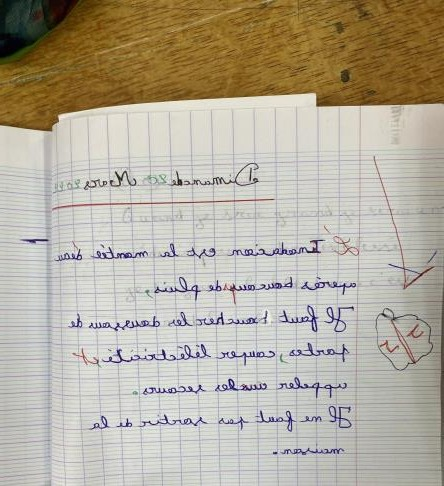 Dimanche 27 Mars 2011
L'Inodasion est la montée deau
aprées boucoup de pluie,
If faut boucher les dousson de
portes, couper l'éléctricité, et
appeler ver les secours.
Il ne faut pas sortir de la
maison.
2
2